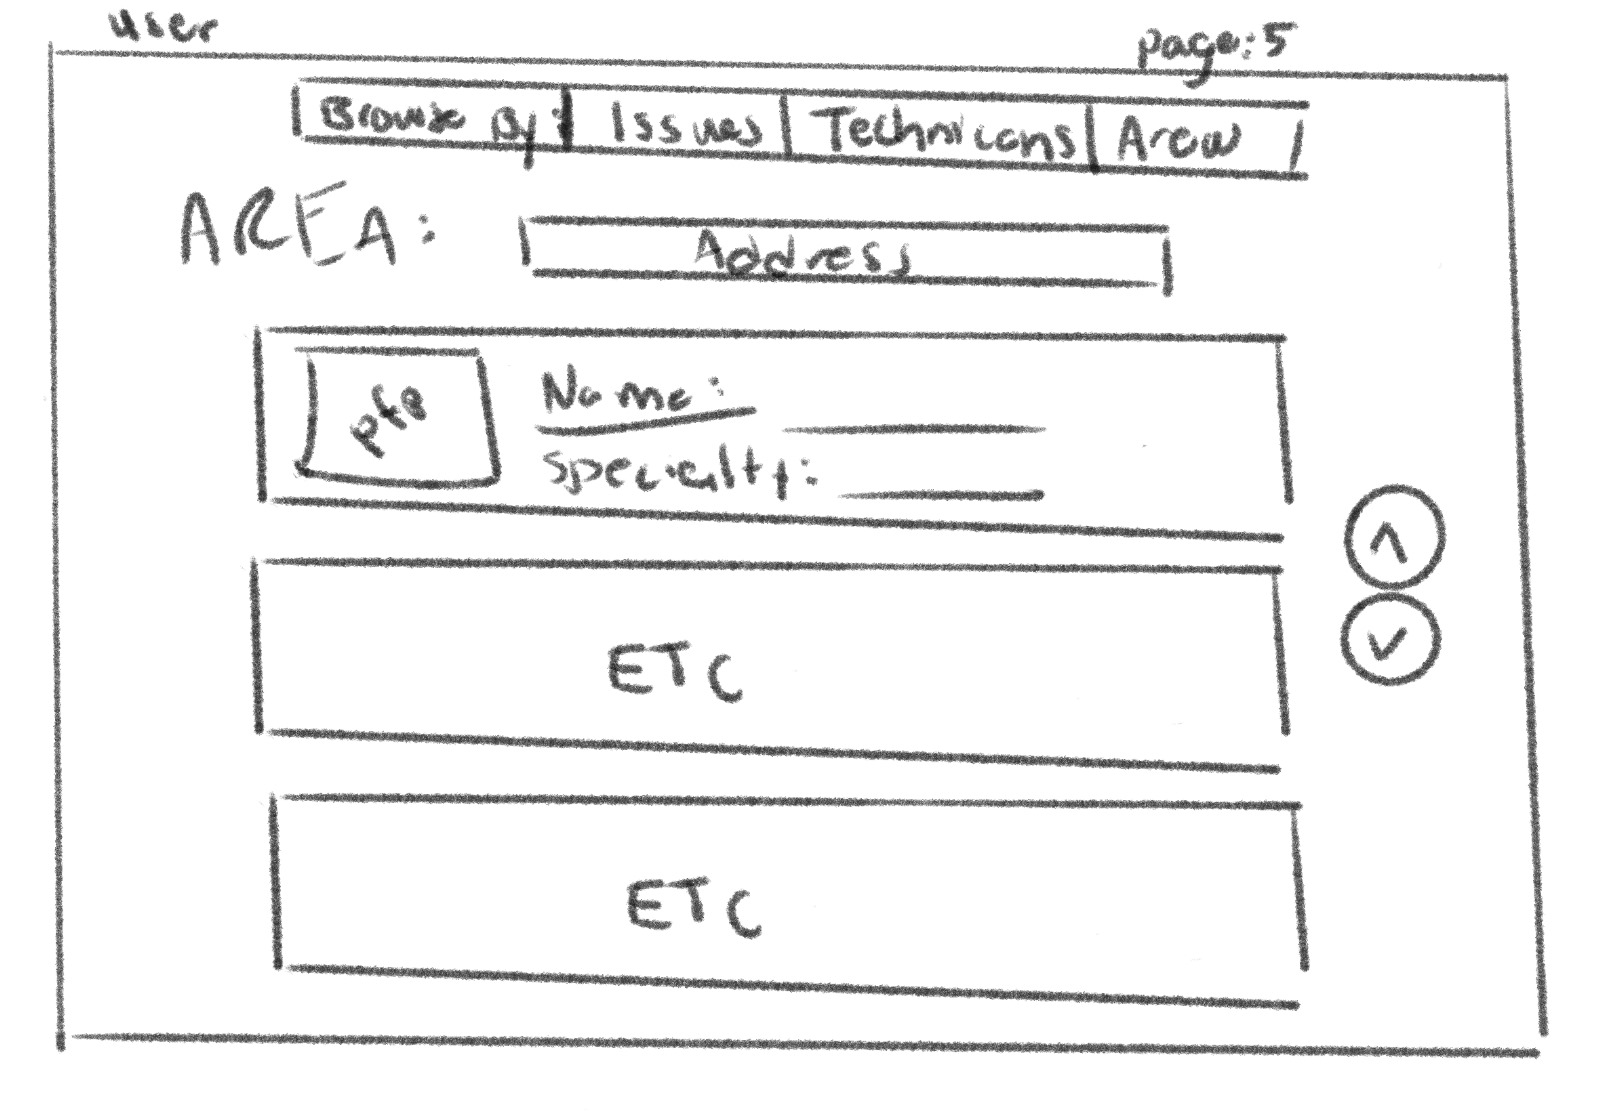 user
page: 5
Browse By: Issues Technicans Area
AREA: Address
pfp
Name:
specialty:
ETC
ETC